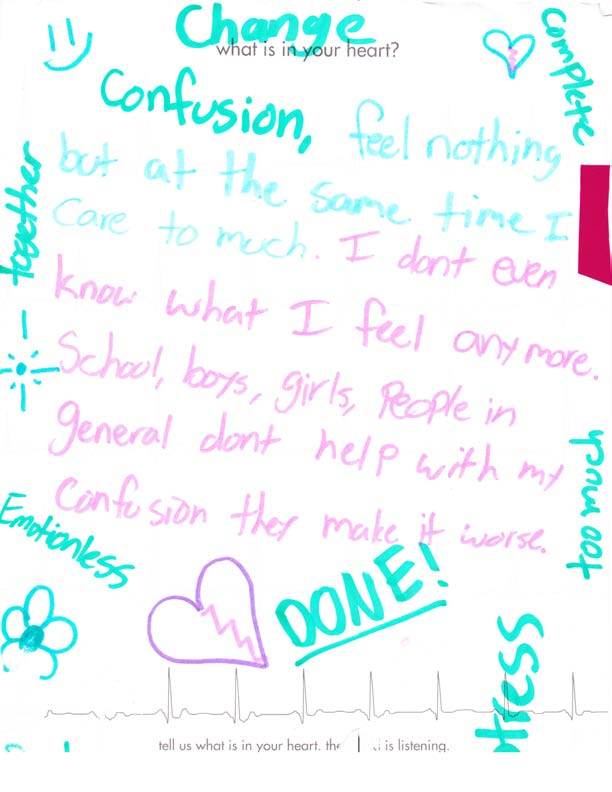 Change
what is in your heart?
Complete
Confusion, feel nothing
but at the same time I
care to much. I dont even
know what I feel anymore.
School, boys, girls, People in
general dont help with my
confusion they make it worse.
together
Emotionless
too much
DONE!
stress
tell us what is in your heart. the is listening.